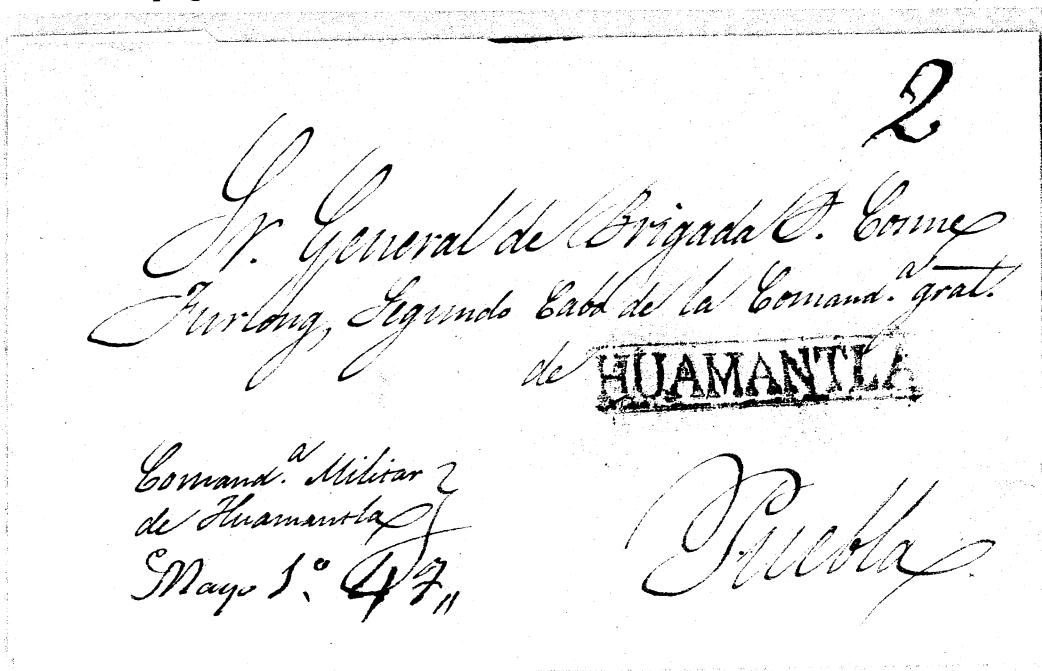 2
Sr. General de Brigada D. Cosme
Furlong, Segundo Cabo de la Comand.a gral.
de HUAMANTLA
Comand.a Militar
de Huamantla
Mayo 1.o 47,,
Puebla